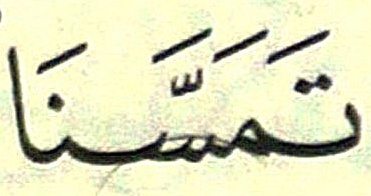 تَمَسَّنَا